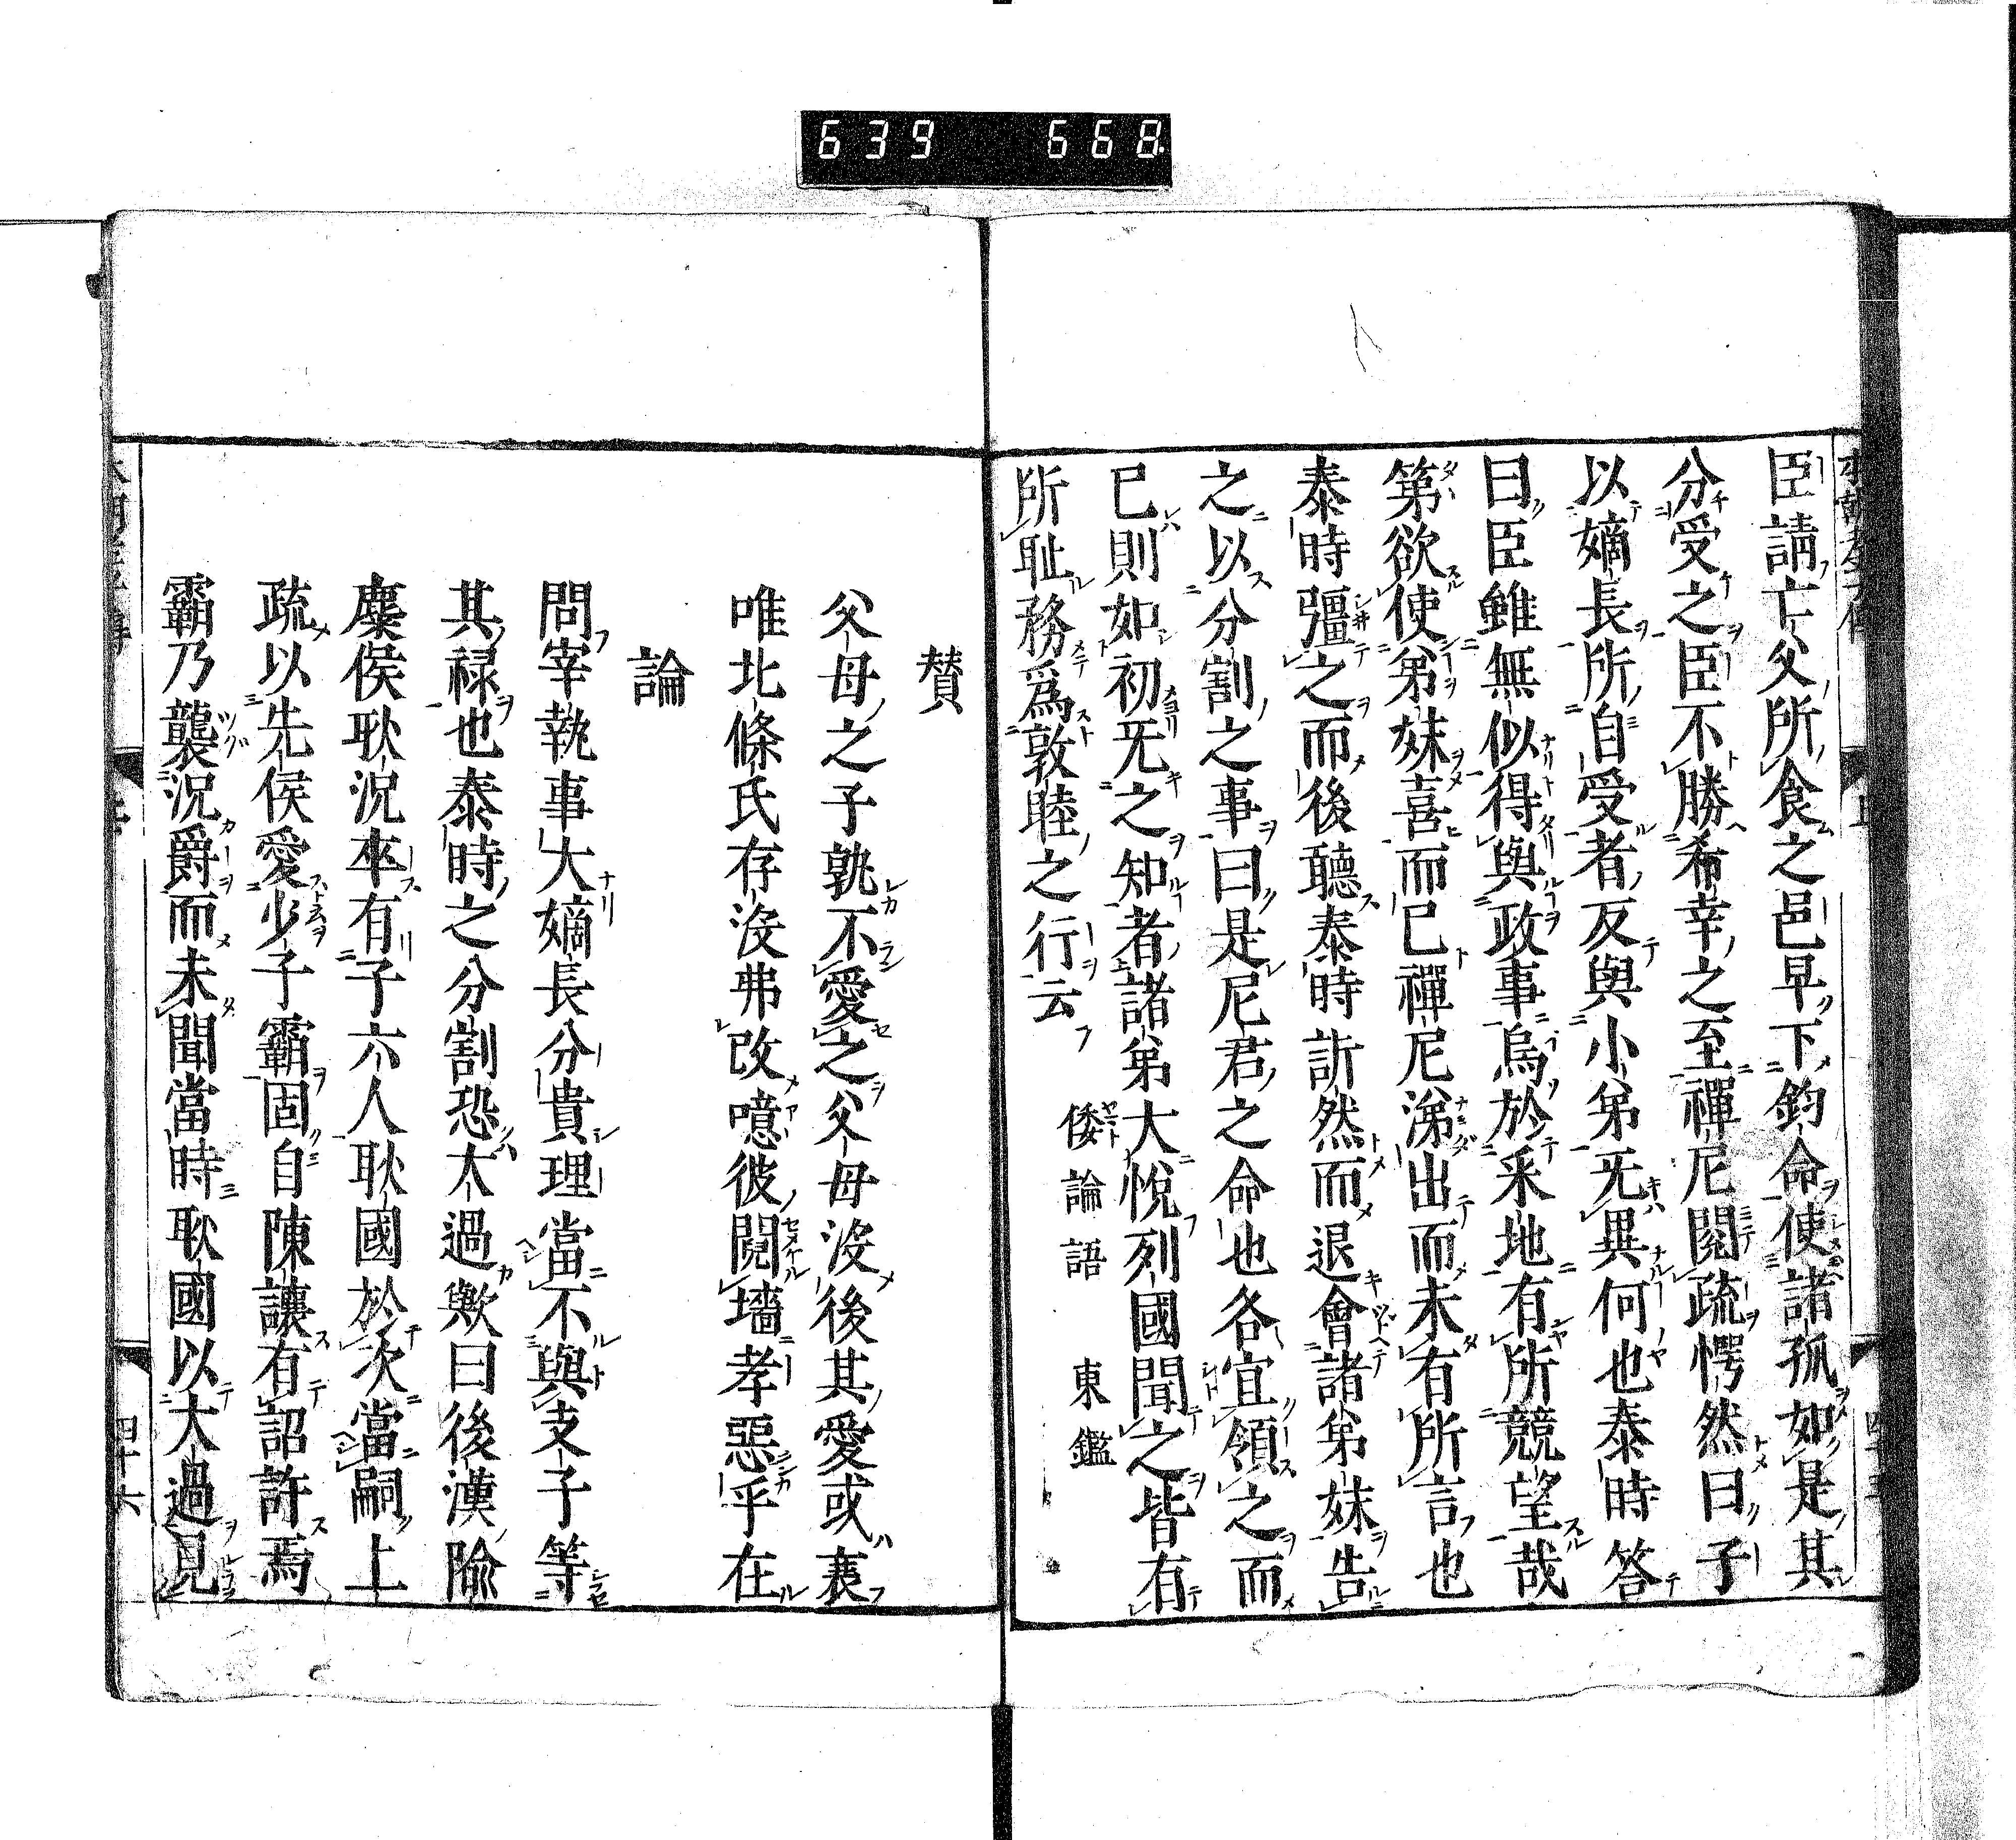 639 668
臣請亡父所食之邑早下鈞命使諸孤如是其
分受之臣不勝希幸之至禪尼閱疏愕然曰子
以嫡長所自受者反與小弟旡異何也泰時答
曰臣雖無似得與政事烏於釆地有所競望哉
第欲使弟妹喜而已禪尼涕出而未有所言也
泰時彊之而後聽泰時訢然而退會諸弟妹告
之以分割之事曰是尼君之命也各宜領之而
已則如初旡之知者諸弟大悅列國聞之皆有
所耻務爲敦睦之行云 倭論語 東鑑
贊
父母之子孰不愛之父母沒後其愛或衰
唯北條氏存沒弗改噫彼鬩墻孝惡乎在
論
問宰執事大嫡長分貴理當不與支子等
其禄也泰時之分割恐太過歟曰後漢陯
麋侯耿況卒有子六人耿國於次當嗣上
疏以先侯愛少子霸固自陳讓有詔許焉
霸乃襲況爵而未聞當時耿國以大過見
四十六